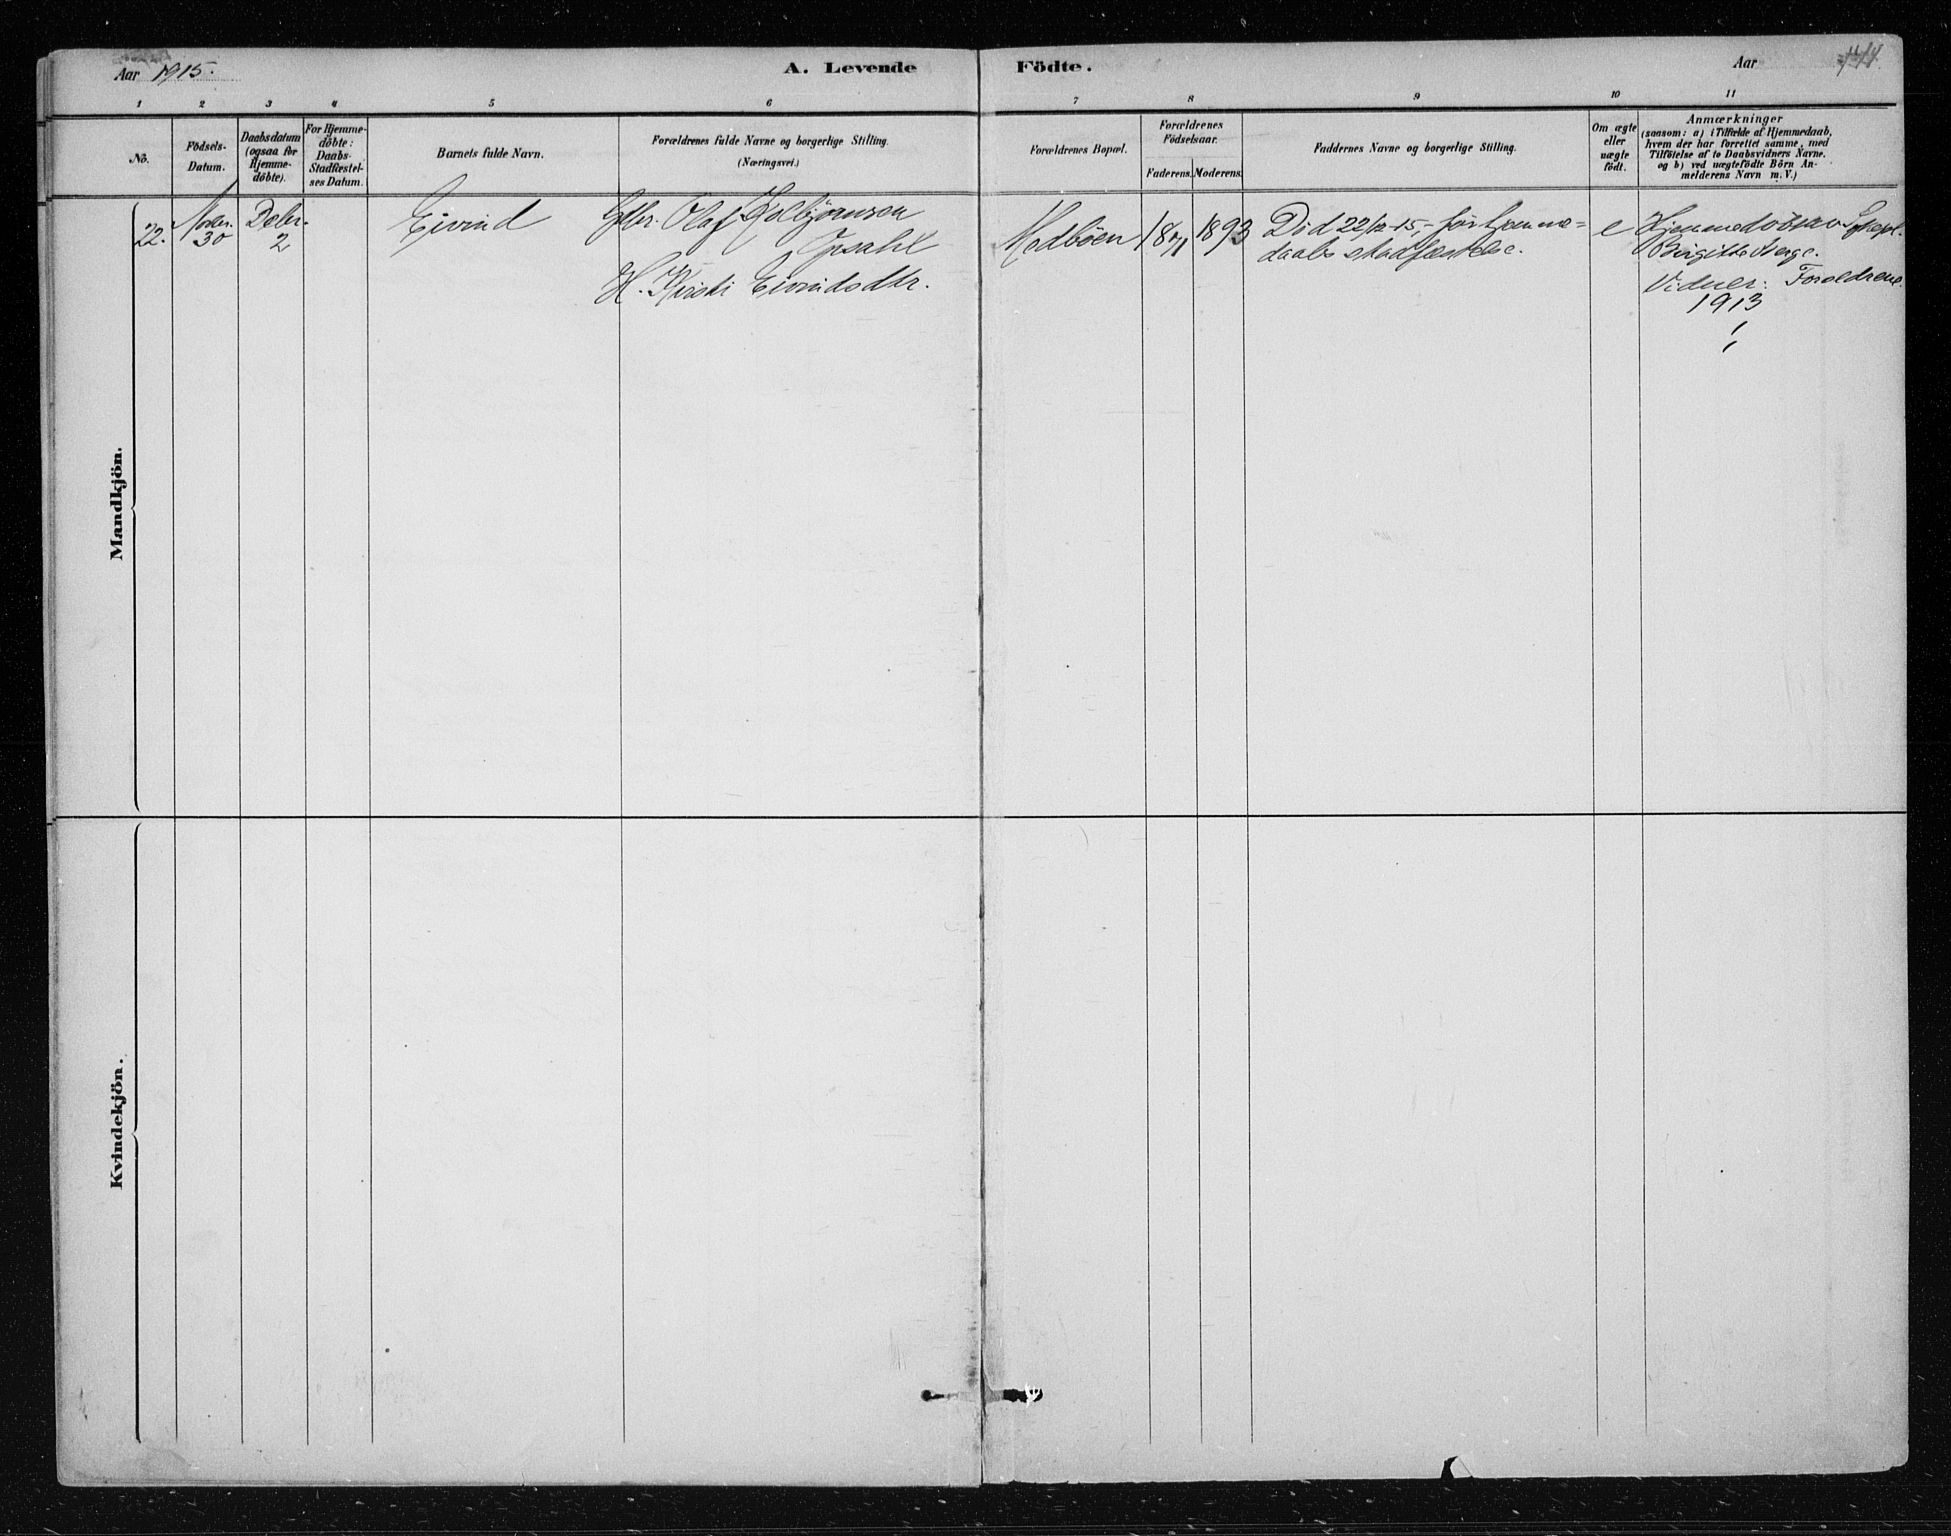 Aar 1915.
A. Levende Födte.
Aar
1 2 3 4 5 6 7 8 9 10 11
No.
Födsels-
Datum.
Daabsdatum
(ogsaa for
Hjemme-
döbte).
For Hjemme-
döbte:
Daabs-
Stadfæstel-
ses Datum.
Barnets fulde Navn.
Forældrenes fulde Navne og borgerlige Stilling.
(Næringsvei.)
Forældrenes Bopæl.
Forældrenes
Födselsaar.
Faderens. Moderens.
Faddernes Navne og borgerlige Stilling.
Om ægte
eller
uægte
födt.
Anmærkninger
(saasom: a) i Tilfælde af Hjemmedaab,
hvem der har forrettet samme, med
Tilföielse af to Daabsvidners Navne,
og b) ved uægtefödte Börn An-
melderens Navn m. V.)
Mandkjön.
22.
Novbr.
30
Debr.
2
Eivind
Gbr. Olaf Kolbjørnsen
Opsahl
H. Kirsti Eivindsdtr.
Modbøen
1871
1893
Död 22/12-15,- før hjemme-
daabs stadfæstelse.
e
Hjemmedöbt av Sykepl.
Birgitte Berge.
Vidner: Foreldrene.
1913
Kvindekjön.